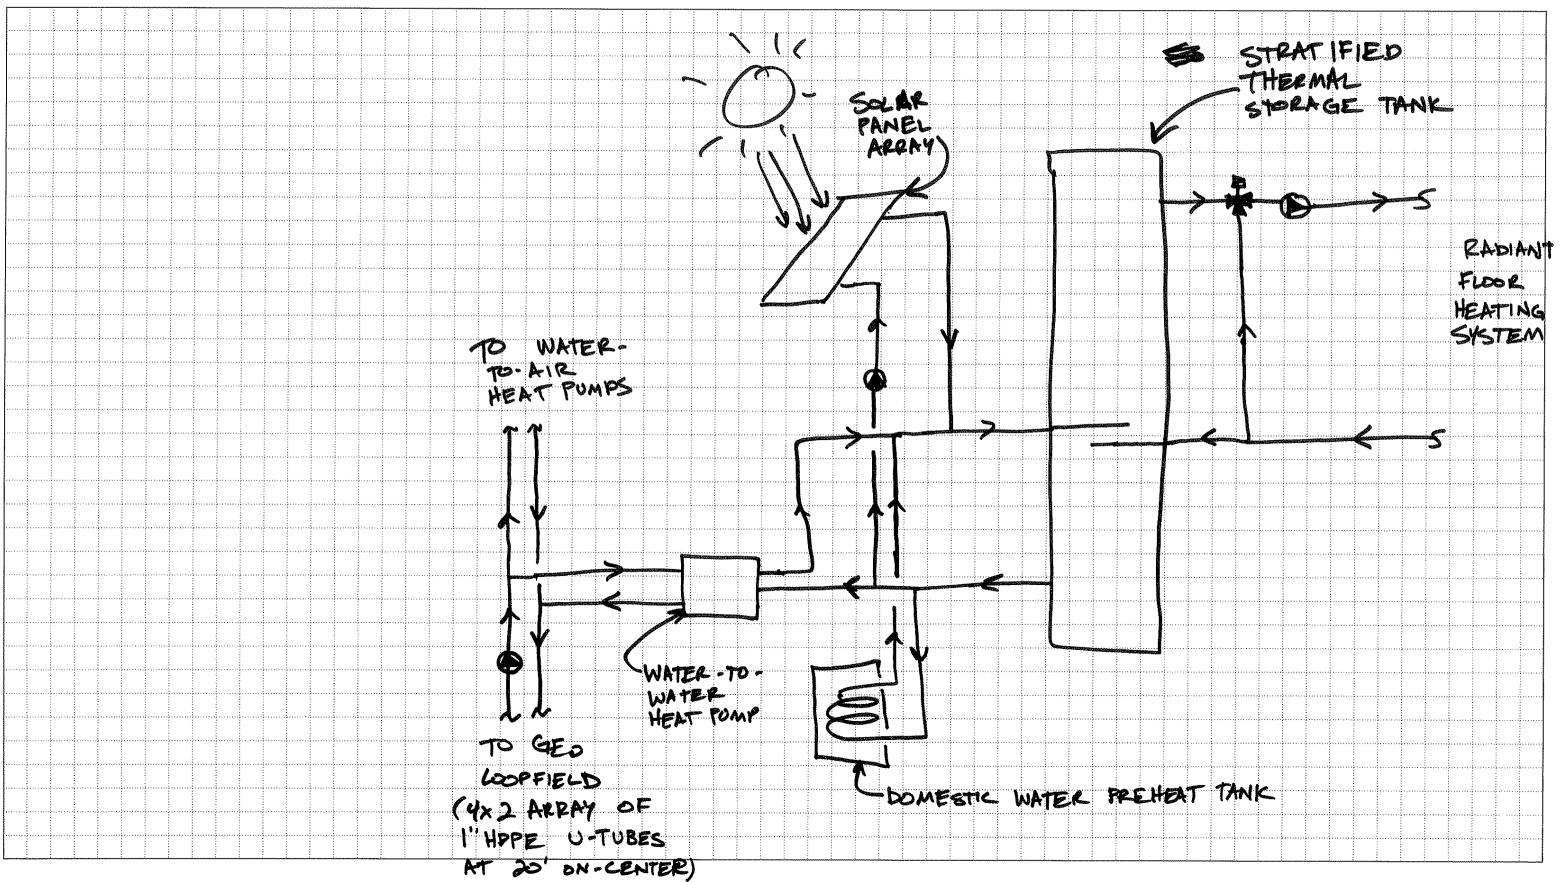 STRATIFIED
THERMAL
STORAGE TANK
SOLAR
PANEL
ARRAY
RADIANT
FLOOR
HEATING
SYSTEM
TO WATER-
TO-AIR
HEAT PUMPS
WATER-TO-
WATER
HEAT PUMP
TO GEO
LOOPFIELD
(4x2 ARRAY OF
1" HDPE U-TUBES
AT 20' ON-CENTER)
DOMESTIC WATER PREHEAT TANK